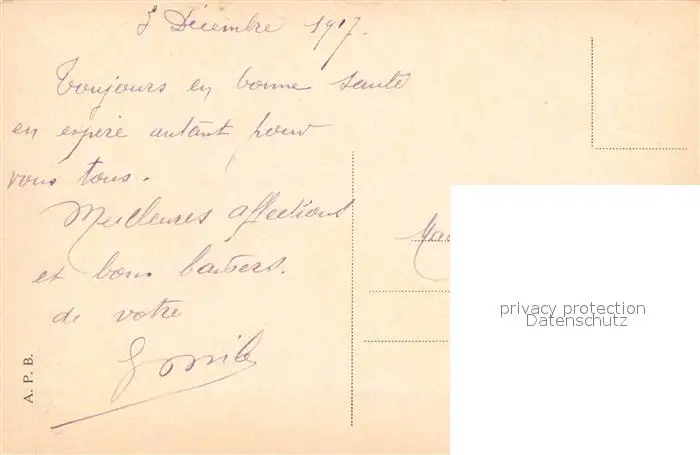 Décembre 1917.
Toujours en bonne santé
en espère autant pour
vous tous.
Meilleures affections
et bons baisers.
de votre
A. P. B.
privacy protection
Datenschutz